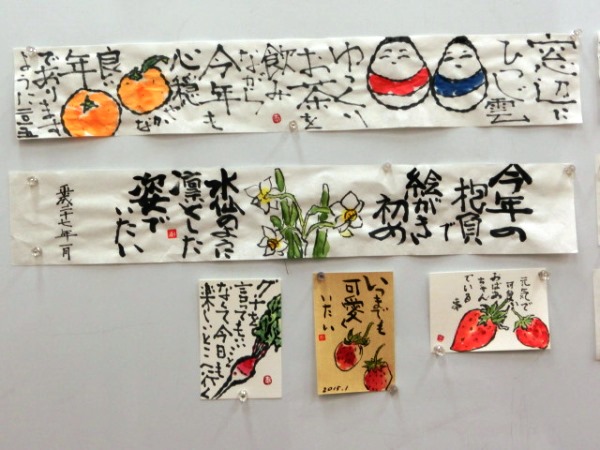 窓辺に
ひつじ雲
ゆっくり
お茶を
飲み
ながら
今年も
心穏
やかな
良い
年
でありますように
今年の
抱負
絵がき
初め
水仙のように
凛とした
姿で
いたい
平成二十七年一月
グチを
言ても…
なくて今日も
楽しいとこへ行く
いつまでも
可愛く
いたい
2015.1
元気で
可愛い
おばあ
ちゃん
でいる